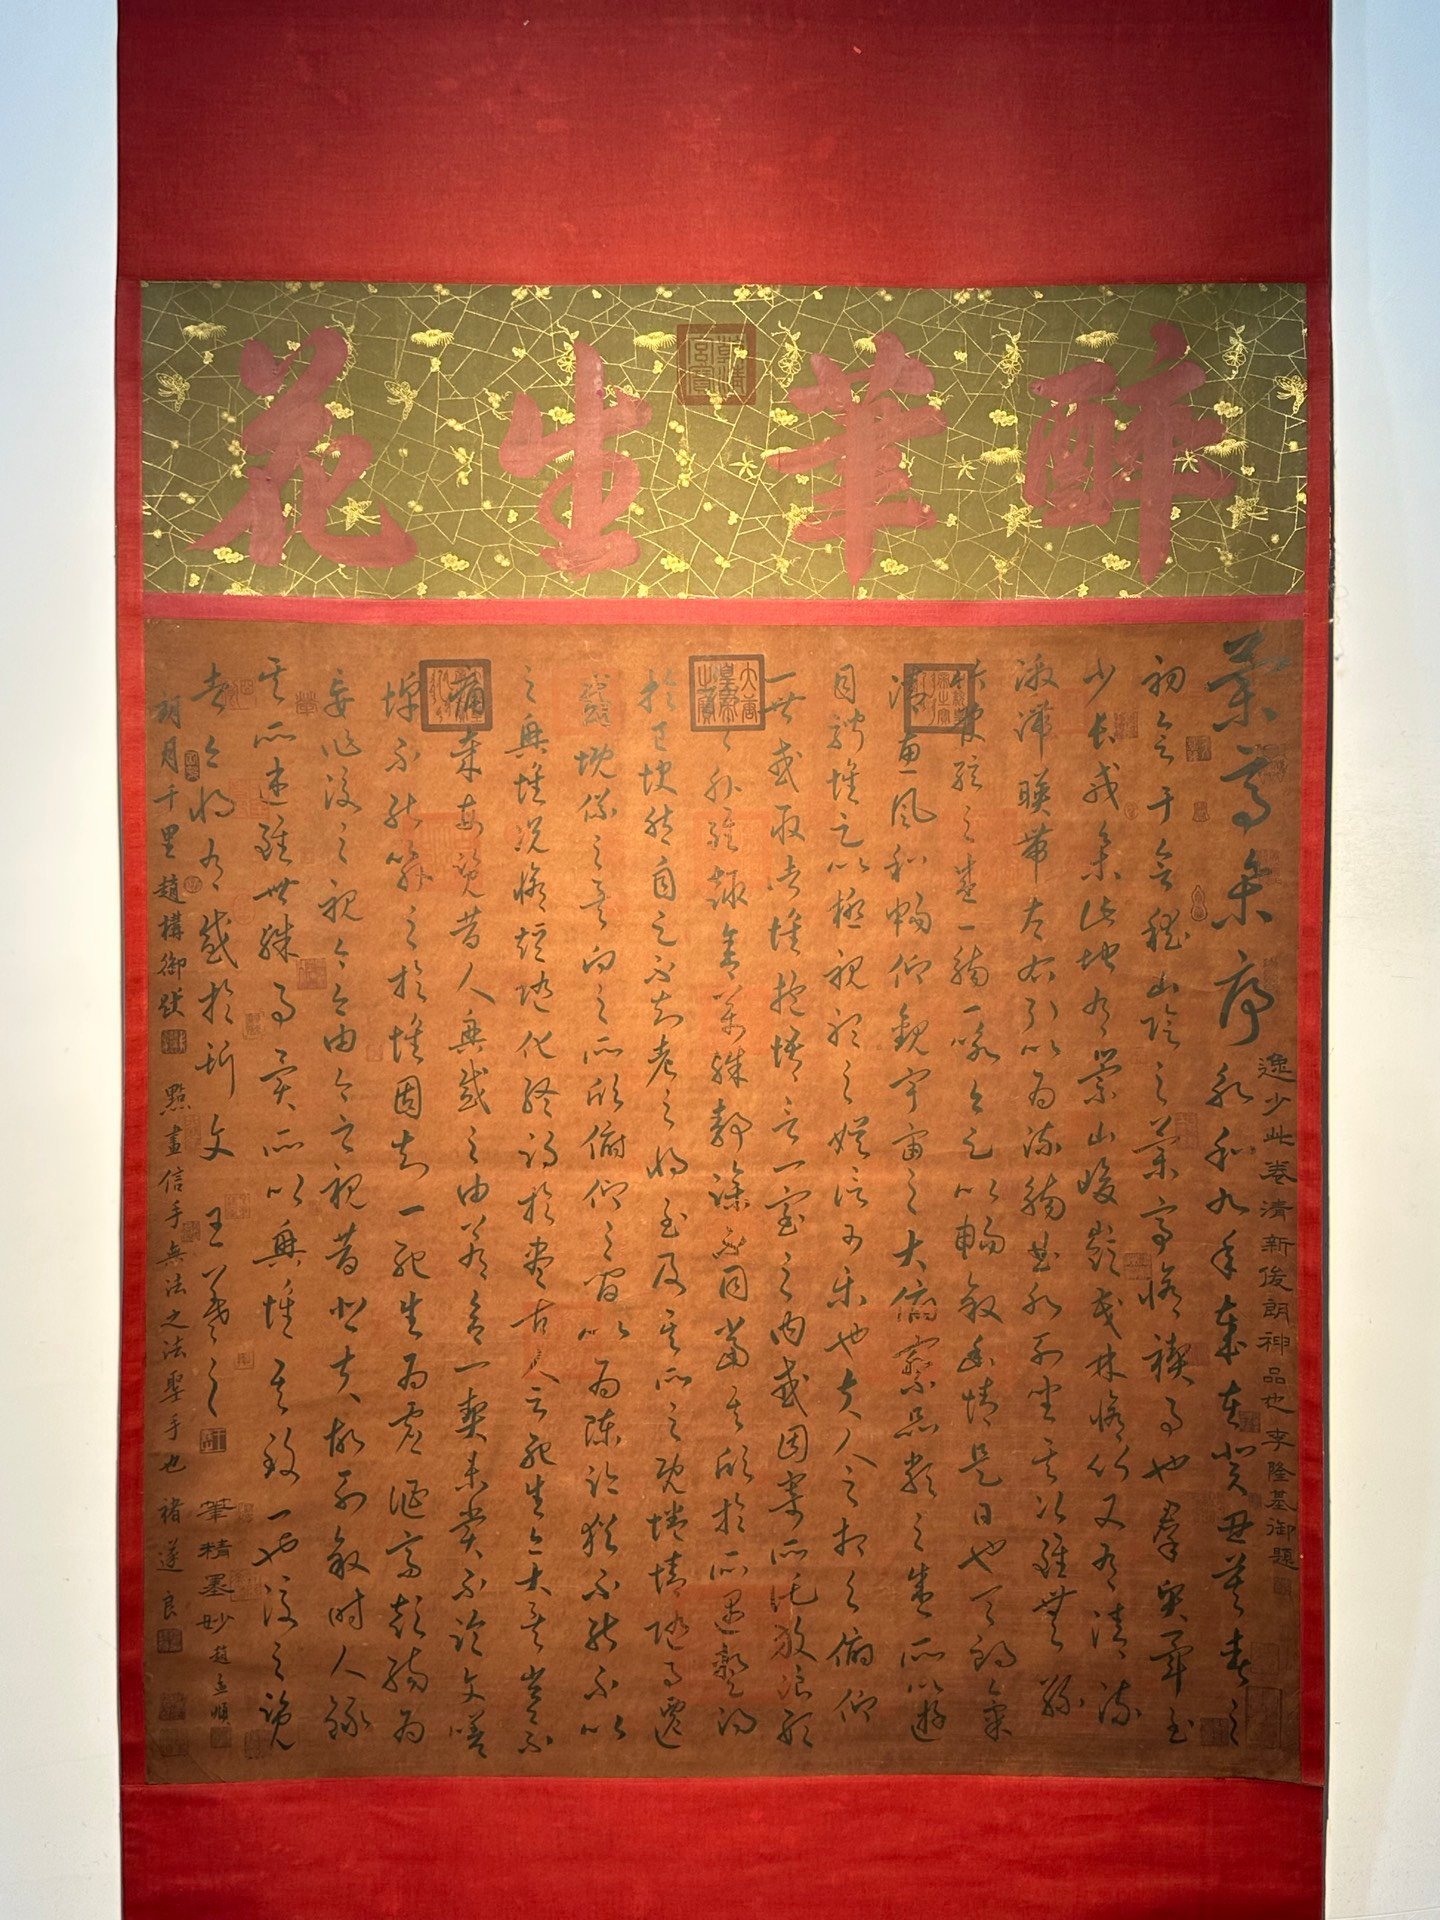 醉筆生花
逸少此卷清新俊朗神品也李隆基御題
蘭亭集序永和九年歲在癸丑暮春之
初會于會稽山陰之蘭亭脩禊事也群賢畢至
少長咸集此地有崇山峻嶺茂林脩竹又有清流
激湍暎帶左右引以為流觴曲水列坐其次雖無絲
竹管絃之盛一觴一詠亦足以暢敘幽情是日也天朗氣
清惠風和暢仰觀宇宙之大俯察品類之盛所以遊
目騁懷足以極視聽之娛信可樂也夫人之相與俯仰
一世或取諸懷抱悟言一室之內或因寄所託放浪形
骸之外雖趣舍萬殊靜躁不同當其欣於所遇蹔得
於己快然自足不知老之將至及其所之既惓情隨事遷
感慨係之矣向之所欣俯仰之間以為陳跡猶不能不以
之興懷況脩短隨化終期於盡古人云死生亦大矣豈不
痛哉每覽昔人興感之由若合一契未嘗不臨文嗟
悼不能喻之於懷固知一死生為虛誕齊彭殤為
妄作後之視今亦由今之視昔悲夫故列敘時人錄
其所述雖世殊事異所以興懷其致一也後之覽
者亦將有感於斯文 王羲之
筆精墨妙 趙孟頫
朗月千里趙構御跋
點畫信手無法之法聖手也 褚遂良
大唐皇帝之寶